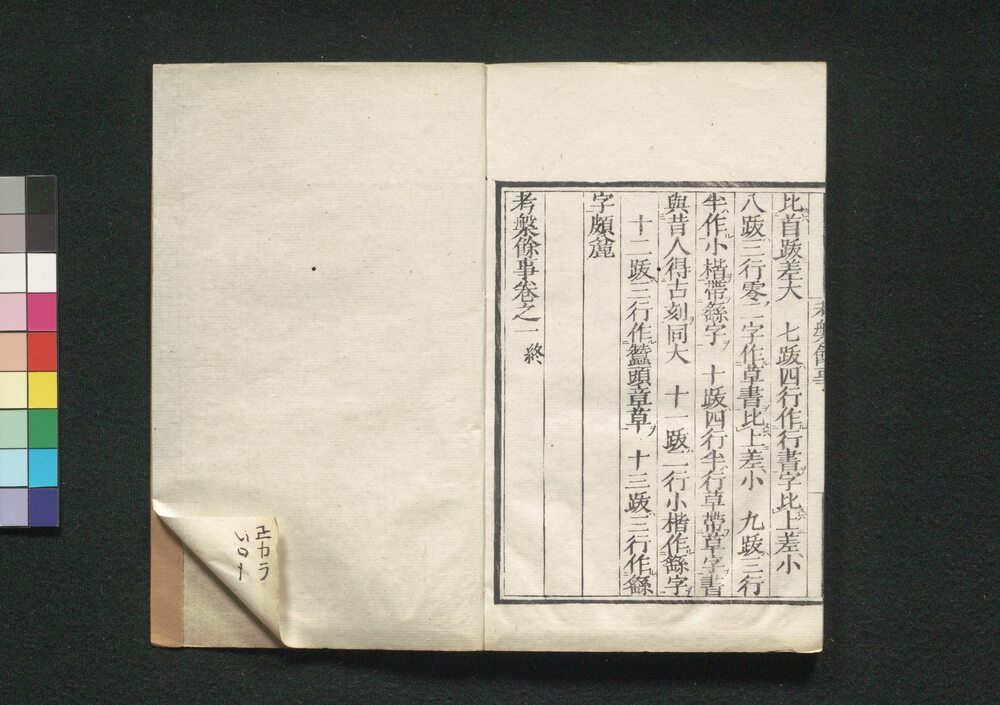 比首跋差大　七跋四行作行書字比上差小
八跋三行零二字作草書比上差小　九跋三行
半作小楷帶繇字　十跋四行半行草帶草字書
與昔人得古刻同大　十一跋二行小楷作繇字
十二跋三行作蠶頭章草　十三跋三行作繇
字頗麄
考槃餘事卷之一　終
考槃餘事
正カラ